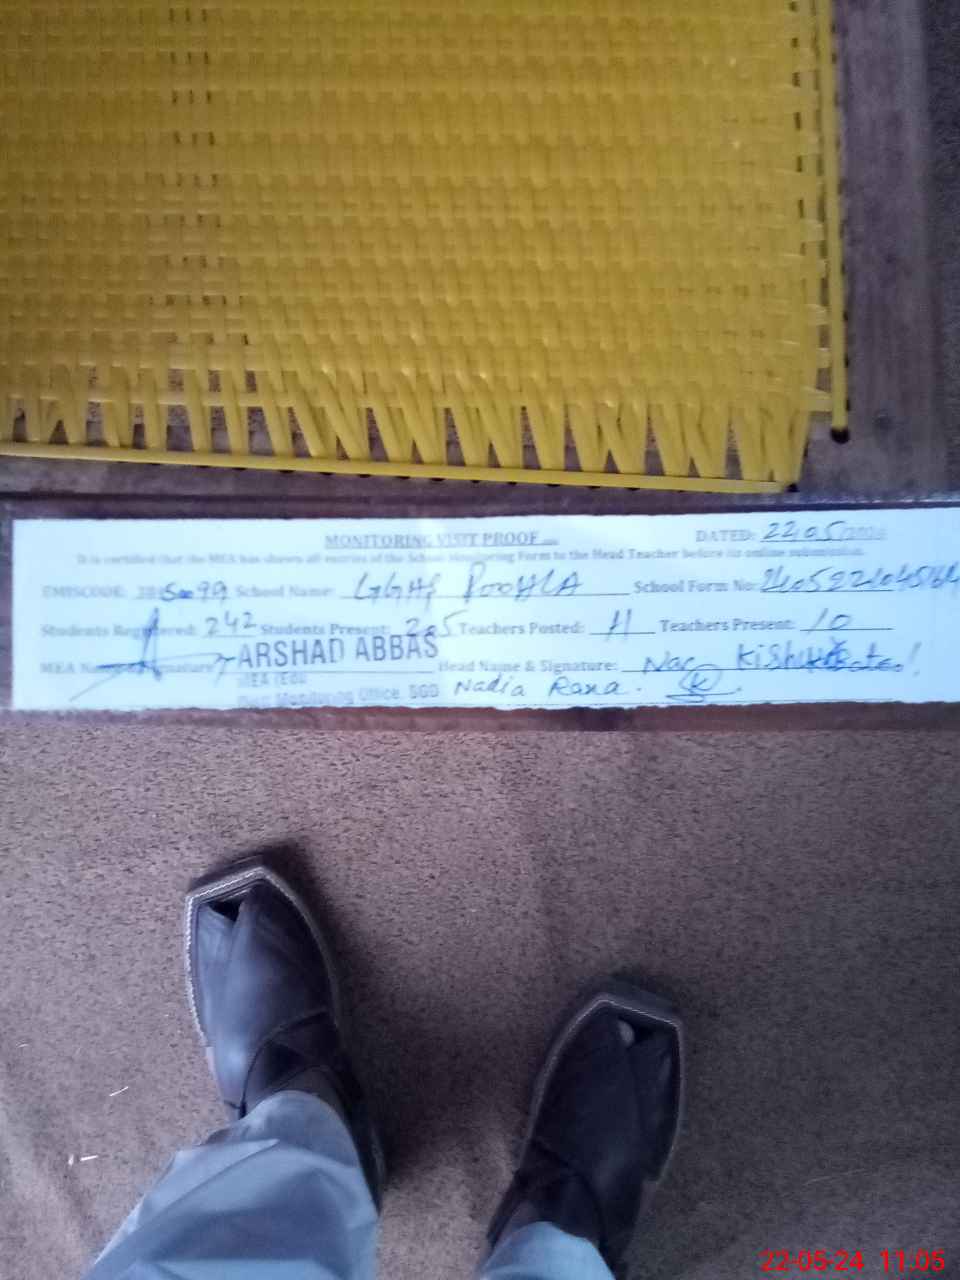 MONITORING VISIT PROOF DATED: 22-05-2024
It is certified that the MEA has shown all entries of the School Monitoring Form to the Head Teacher before its online submission.
EMISCODE: School Name: GGHS POOHLA School Form No:
Students Registered: 242 Students Present: 205 Teachers Posted: 11 Teachers Present: 10
MEA Name & Signature: ARSHAD ABBAS Head Name & Signature:
MEA (Edu) Nadia Rana.
Distt Monitoring Office, SGD
22-05-24 11:05